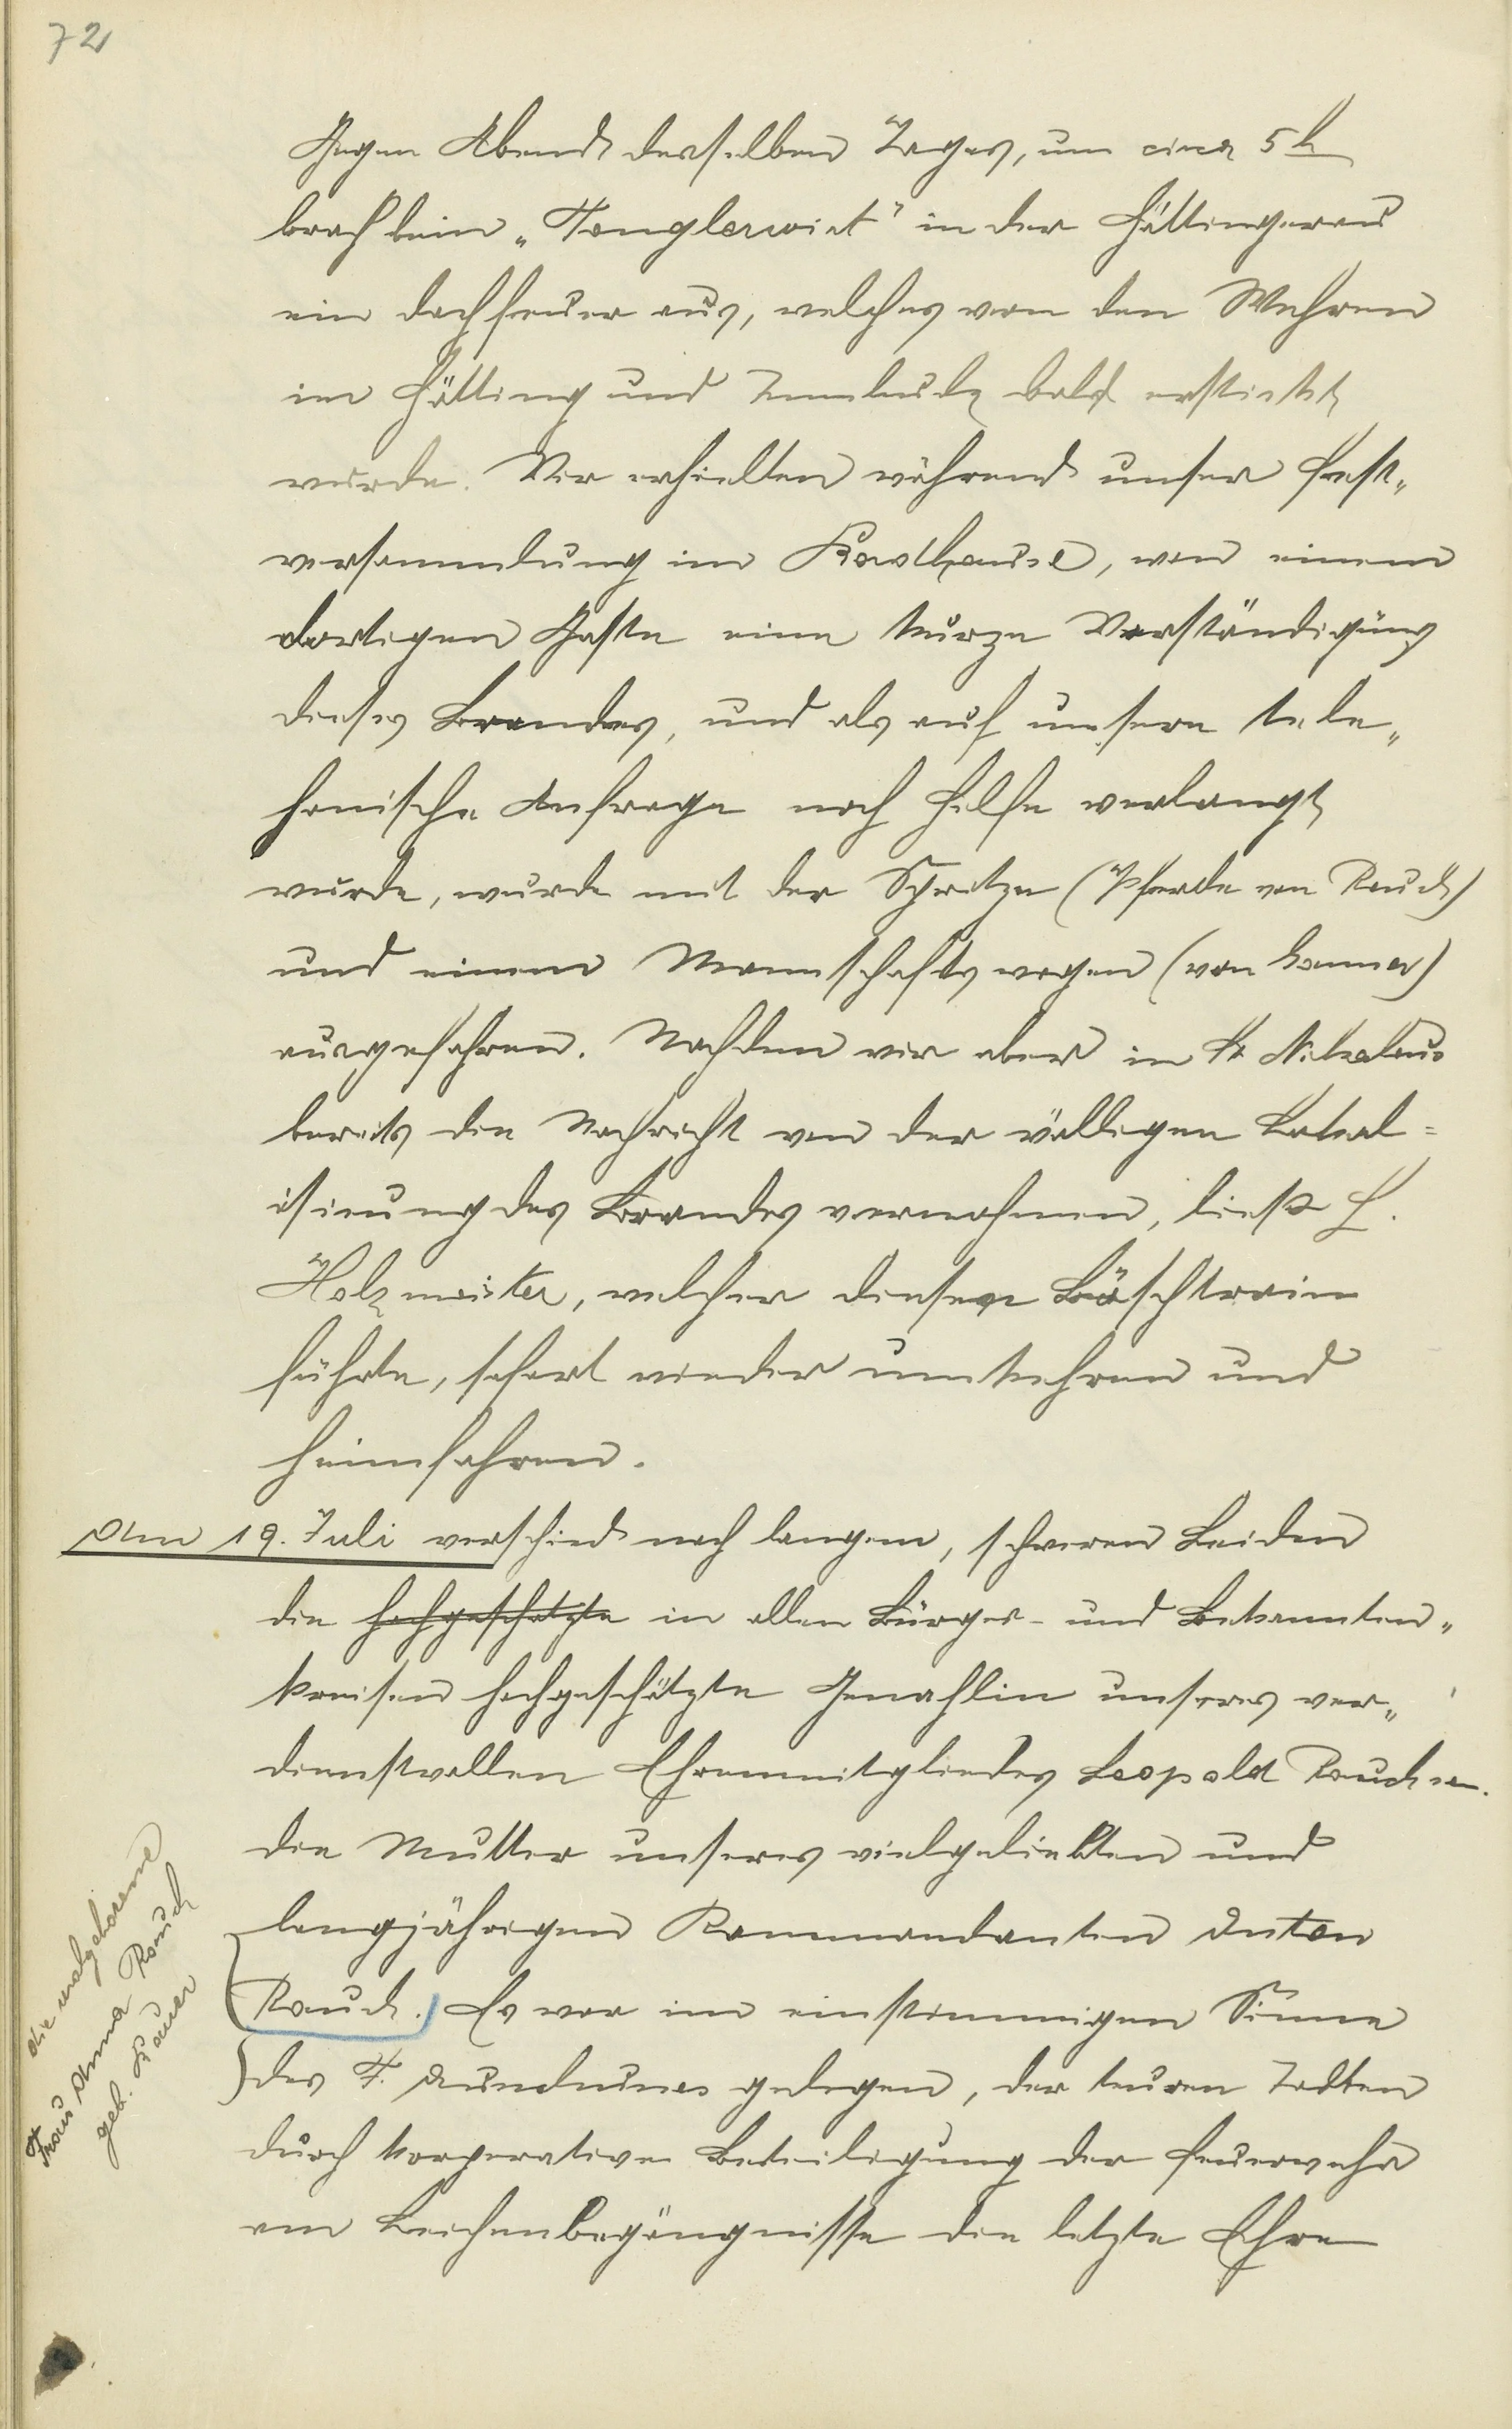 72
Gegen Abend desselben Tages, um circa 5 h
brach beim „Tenglerwirt" in der Höttingerau
ein Dachfeuer aus, welches von den Wehren
in Hötting und Innsbruck bald erstickt
wurde. Wir erhielten während unser Fest„
versammlung im Gasthause, von einem
dortigen Gaste eine kurze Verständigung
dieses Brandes, und als auf unsere tele„
fonische Anfrage noch Hilfe verlangt
wurde, wurde mit der Spritze (Pferde von Rauch)
und einem Mannschaftswagen (von Lanner)
ausgefahren. Nachdem wir aber in St. Nikolaus
bereits die Nachricht von der völligen Lokal=
isierung des Brandes vernahmen, liess H.
Holzmeister, welcher diesen Löschtrain
führte, sofort wieder umkehren und
heimfahren.
Am 19. Juli verschied nach langem, schweren Leiden
die hochgeschätzte in allen Bürger- und Bekannten„
kreisen hochgeschätzte Gemahlin unseres ver„
dienstvollen Ehrenmitgliedes Leopold Rauch sen.
die Mutter unseres vielgeliebten und
langjährigen Kommandanten Anton
Rauch. Es war im einstimmigen Sinne
des F. gelegen, der teuren Todten
durch korporative Beteiligung der Feuerwehr
am Leichenbegängnisse die letzte Ehre
die wolgeborene
Frau Anna Rauch
geb.